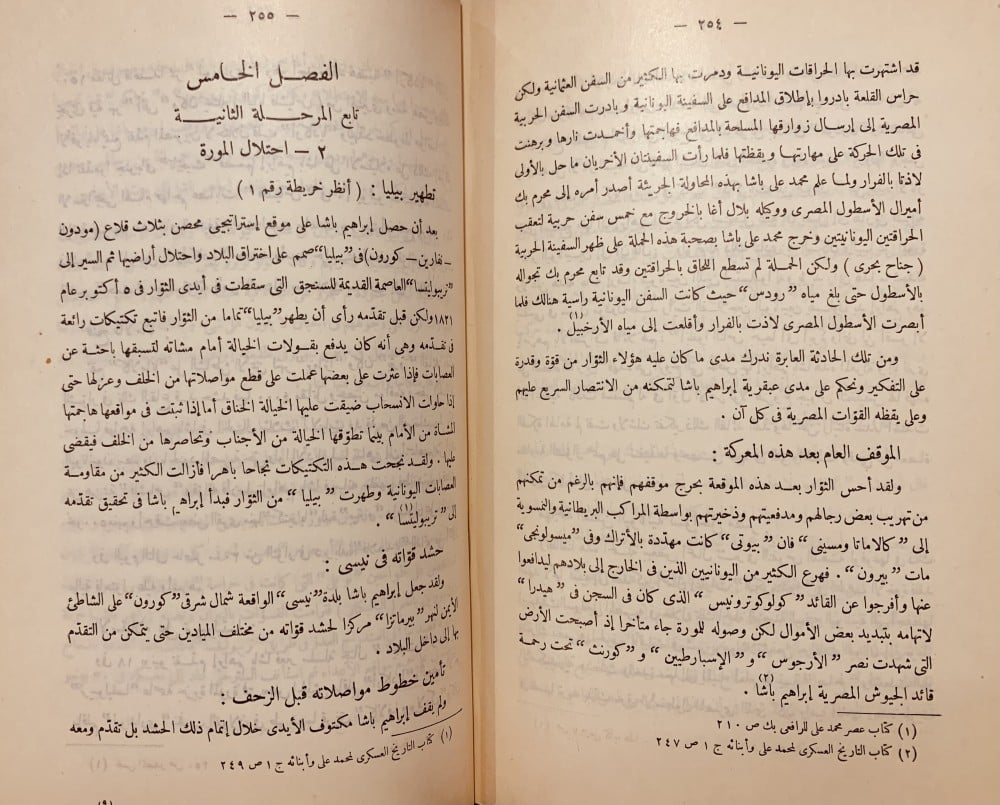 — ٢٥٤ —
قد اشتهرت بها الحراقات اليونانية ودمرت بها الكثير من السفن العثمانية ولكن
حراس القلعة بادروا بإطلاق المدافع على السفينة اليونانية وبادرت السفن الحربية
المصرية إلى إرسال زوارقها المسلحة بالمدافع فهاجمتها وأخمدت نارها وبرهنت
فى تلك الحركة على مهارتها ويقظتها فلما رأت السفينتان الأخريان ما حل بالأولى
لاذتا بالفرار ولما علم محمد على باشا بهذه المحاولة الجريئة أصدر أمره إلى محرم بك
أميرال الأسطول المصرى ووكيله بلال أغا بالخروج مع خمس سفن حربية لتعقب
الحراقتين اليونانيتين وخرج محمد على باشا بصحبة هذه الحملة على ظهر السفينة الحربية
( جناح بحرى ) ولكن الحملة لم تسطع اللحاق بالحراقتين وقد تابع محرم بك تجواله
بالأسطول حتى بلغ مياه ”رودس“ حيث كانت السفن اليونانية راسية هنالك فلما
أبصرت الأسطول المصرى لاذت بالفرار وأقلعت إلى مياه الأرخبيل (١) .
ومن تلك الحادثة العابرة ندرك مدى ما كان عليه هؤلاء الثوار من قوة وقدرة
على التفكير ونحكم على مدى عبقرية إبراهيم باشا لتمكنه من الانتصار السريع عليهم
وعلى يقظه القوات المصرية فى كل آن .
الموقف العام بعد هذه المعركة :
ولقد أحس الثوار بعد هذه الموقعة بحرج موقفهم فإنهم بالرغم من تمكنهم
من تهريب بعض رجالهم ومدفعيتهم وذخيرتهم بواسطة المراكب البريطانية والنمسوية
إلى ”كالاماتا ومسينى“ فان ”بيوتى“ كانت مهددة بالأتراك وفى ”ميسولونجى“
مات ”بيرون“ . فهرع الكثير من اليونانيين الذين فى الخارج إلى بلادهم ليدافعوا
عنها وأفرجوا عن القائد ”كولوكوترونيس“ الذى كان فى السجن فى ”هيدرا“
لاتهامه بتبديد بعض الأموال لكن وصوله للورة جاء متأخرا إذ أصبحت الأرض
التى شهدت نصر ”الأرجوس“ و ”الإسبارطيين“ و ”كورنث“ تحت رحمة
قائد الجيوش المصرية إبراهيم باشا (٢) .
(١) كتاب عصر محمد على للرافعى بك ص ٢١٠
(٢) كتاب التاريخ العسكرى لمحمد على وأبنائه ج ١ ص ٢٤٧
— ٢٥٥ —
الفصل الخامس
تابع المرحلة الثانية
٢ — احتلال المورة
تطهير بيليا : ( أنظر خريطة رقم ١ )
بعد أن حصل إبراهيم باشا على موقع إستراتيجى محصن بثلاث قلاع (مودون
— نفارين — كورون) فى ”بيليا“ صمم على اختراق البلاد واحتلال أراضيها ثم السير إلى
”تريبوليتسا“ العاصمة القديمة للسنجق التى سقطت فى أيدى الثوار فى ٥ أكتوبر عام
١٨٢١ ولكن قبل تقدمه رأى أن يطهر ”بيليا“ تماما من الثوار فاتبع تكتيكات رائعة
فى تقدمه وهى أنه كان يدفع بقولات الخيالة أمام مشاته لتسبقها باحثة عن
العصابات فإذا عثرت على بعضها عملت على قطع مواصلاتها من الخلف وعزلها حتى
إذا حاولت الانسحاب ضيقت عليها الخيالة الخناق أما إذا ثبتت فى مواقعها هاجمتها
المشاة من الأمام بينما تطوقها الخيالة من الأجناب وتحاصرها من الخلف فيقضى
عليها . ولقد نجحت هذه التكتيكات نجاحا باهرا فأزالت الكثير من مقاومة
العصابات اليونانية وطهرت ”بيليا“ من الثوار فبدأ إبراهيم باشا فى تحقيق تقدمه
إلى ”تريبوليتسا (١)“
حشد قواته فى نيسى :
ولقد جعل إبراهيم باشا بلدة ”نيسى“ الواقعة شمال شرقى ”كورون“ على الشاطئ
الأيمن لنهر ”بيرماتزا“ مركزا لحشد قواته من مختلف الميادين حتى يتمكن من التقدم
بها إلى داخل البلاد .
تأمين خطوط مواصلاته قبل الزحف :
ولم يقف إبراهيم باشا مكتوف الأيدى خلال إتمام ذلك الحشد بل تقدم ومعه
(١) كتاب التاريخ العسكرى لمحمد على وأبنائه ج ١ ص ٢٤٩
(٩)